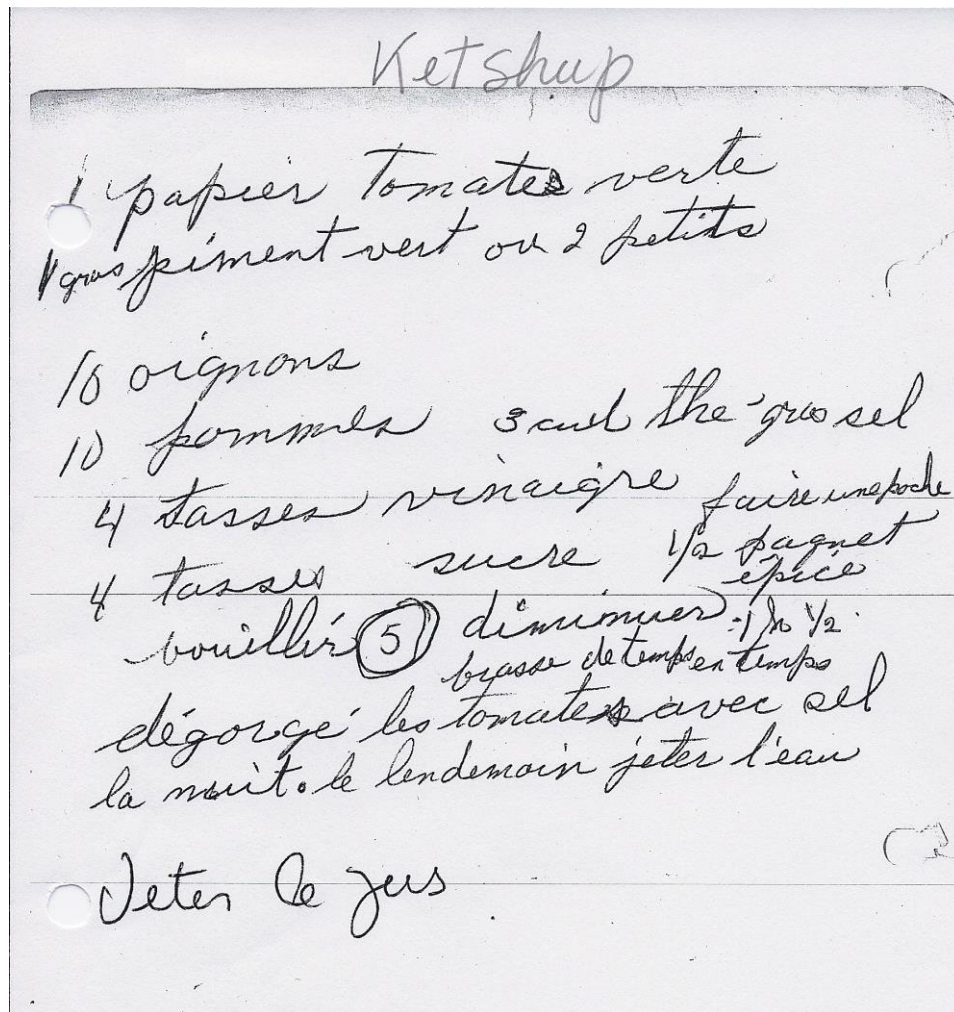 Ketshup
1 papier tomates verte
1 gros piment vert ou 2 petits
10 oignons
10 pommes 3 cuil the gros sel
4 tasses vinaigre faire une poche
4 tasses sucre 1/2 paquet
épice
bouillir 5 diminuer 1 h 1/2
brasse de temps en temps
dégorgé les tomates avec sel
la nuit. le lendemain jeter l'eau
Jeter le jus